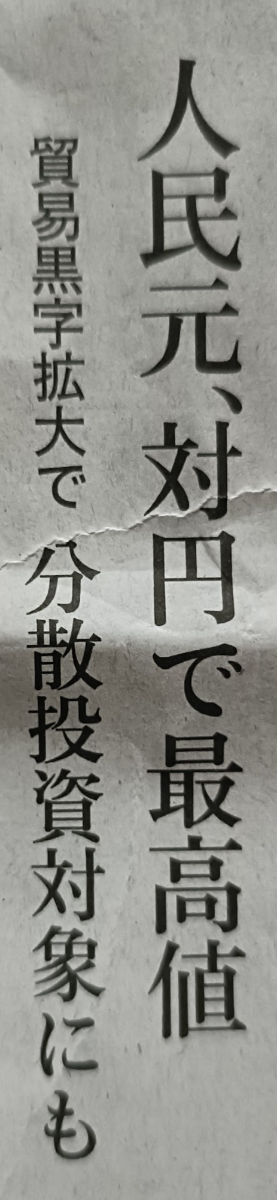 人民元、対円で最高値
貿易黒字拡大で 分散投資対象にも